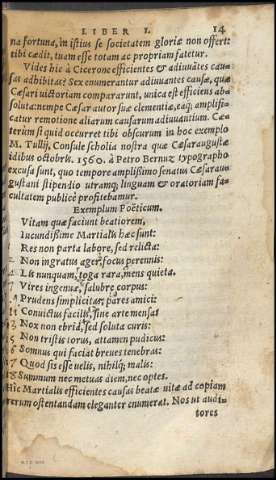 LIBER I. 14
na fortuna, in istius se societatem gloriæ non offert:
tibi cædit, tuam esse totam ac propriam fatetur.
Vides hîc à Cicerone efficientes & adiuuātes cau=
sas adhibitas? Sex enumerantur adiuuantes causæ, quæ
Cæsari uictoriam compararunt, unica est efficiens abs=
soluta: nempe Cæsar autor suæ clementiæ, eaq; amplifi=
catur remotione aliarum causarum adiuuantium. Cæ=
terùm si quid occurret tibi obscurum in hoc exemplo
M. Tullij, Consule scholia nostra quæ Cæsaraugustæ
idibus octobris. 1560. à Petro Bernuz typographo
excusa sunt, quo tempore amplissimo senatus Cæsarau
gustani stipendio utramq; linguam & oratoriam fa=
cultatem publicè profitebamur.
Exemplum Poëticum.
Vitam quæ faciunt beatiorem,
Iucundissime Martialis hæc sunt:
Res non parta labore, sed relicta:
Non ingratus ager, focus perennis:
Lis nunquam, toga rara, mens quieta.
7 Vires ingenuæ, salubre corpus:
Prudens simplicitas, pares amici:
11 Conuictus facilis, sine arte mensa:
13 Nox non ebria, sed soluta curis:
15 Non tristis torus, attamen pudicus:
16 Somnus qui faciat breues tenebras:
17 Quod sis esse uelis, nihilq; malis:
18 Summum nec metuas diem, nec optes.
Hic Martialis efficientes causas beatæ uitæ ad copiam
rerum ostentandam eleganter enumerat. Nos ut audi=
tores